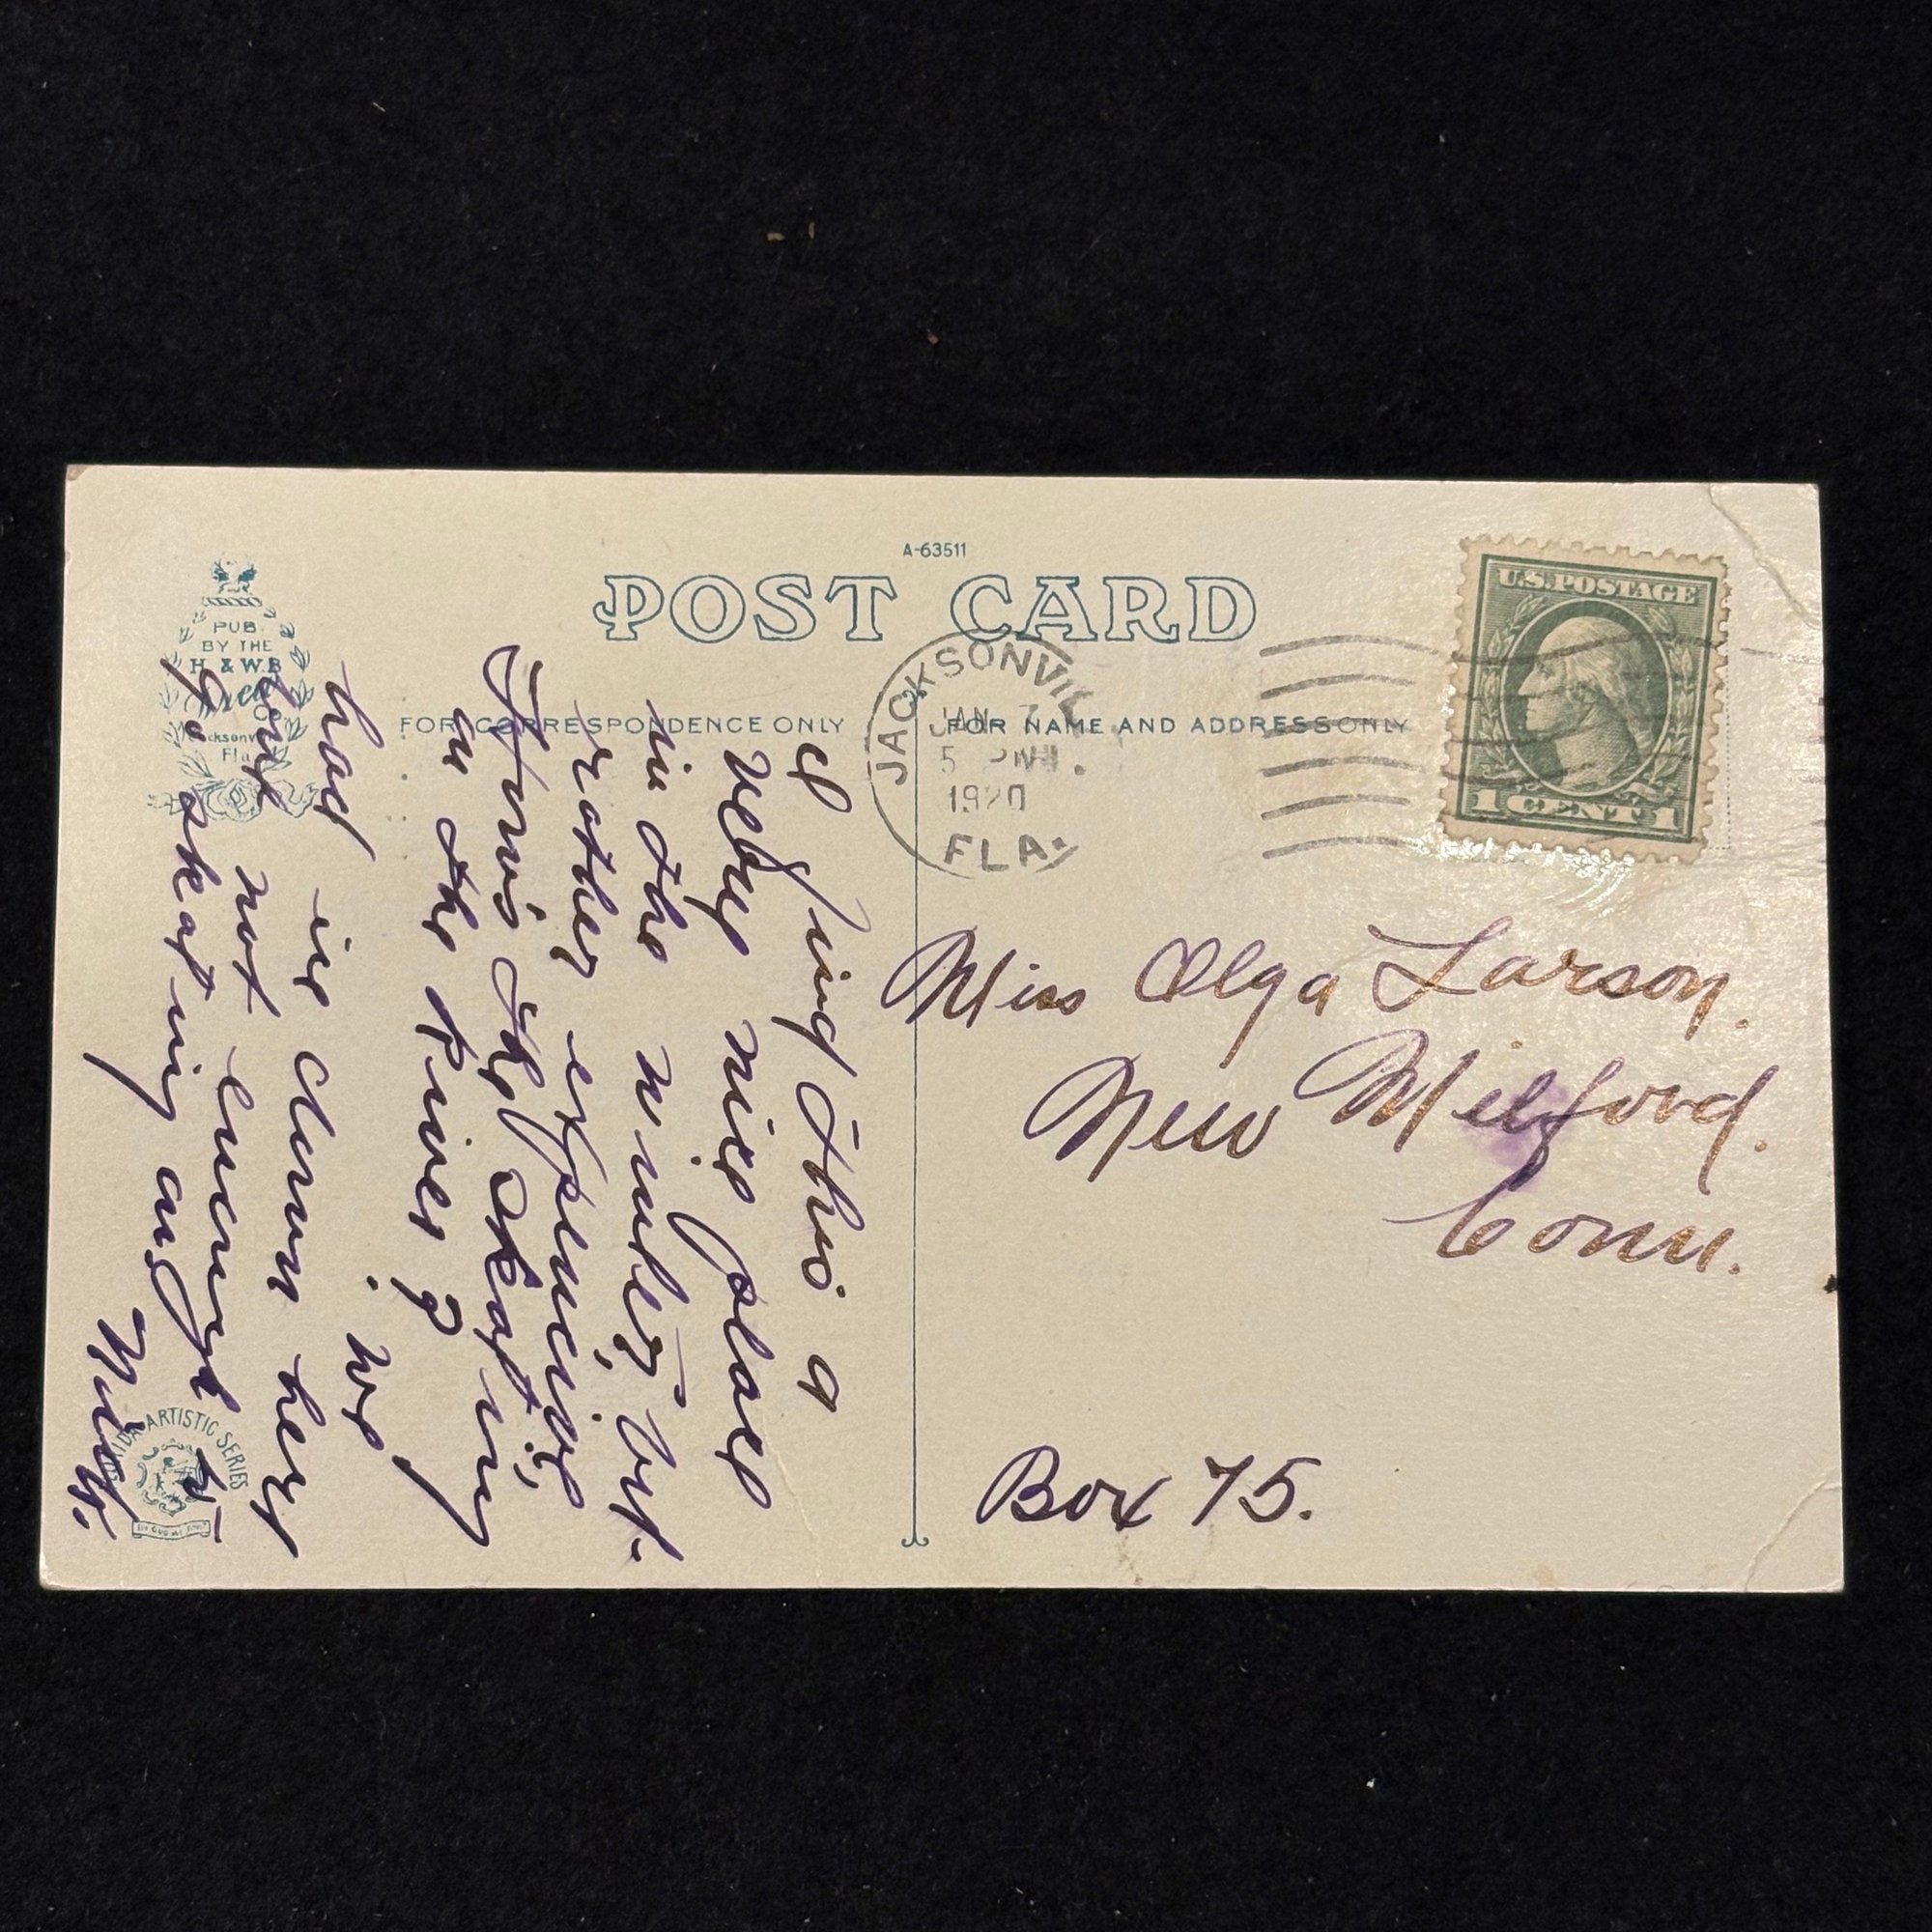 A-63511
POST CARD
PUB.
BY THE
H. & W.B.
DREW
CO.
Jacksonville
Fla.
FOR CORRESPONDENCE ONLY
FOR NAME AND ADDRESS ONLY
JACKSONVILLE
JAN 7
5 PM
1920
FLA.
U.S. POSTAGE
1 CENT 1
I find this a
very nice place
in the winter, but
rather expencive
How's the skating
on the river?
had ice down here
but not enough
for skating on.
Miss Olga Larson.
New Milford.
Conn.
Box 75.
FLORIDA ARTISTIC SERIES
IN GOD WE TRUST